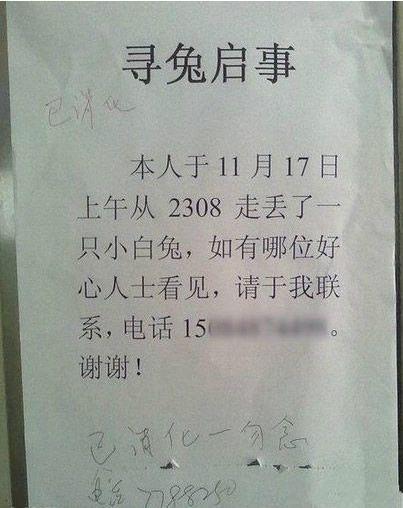 寻兔启事
已消化
本人于 11 月 17 日
上午从 2308 走丢了一
只小白兔，如有哪位好
心人士看见，请于我联
系，电话 15 。
谢谢！
已消化一勿念
电话 7788250